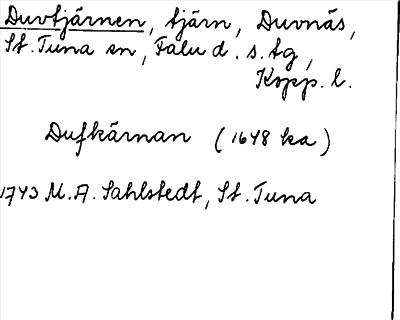 Duvtjärnen, tjärn, Duvnäs,
St. Tuna sn, Falu d. s. tg,
Kopp. l.
Dufkärnan (1648 ka)
1743 M. A. Sahlstedt, St. Tuna